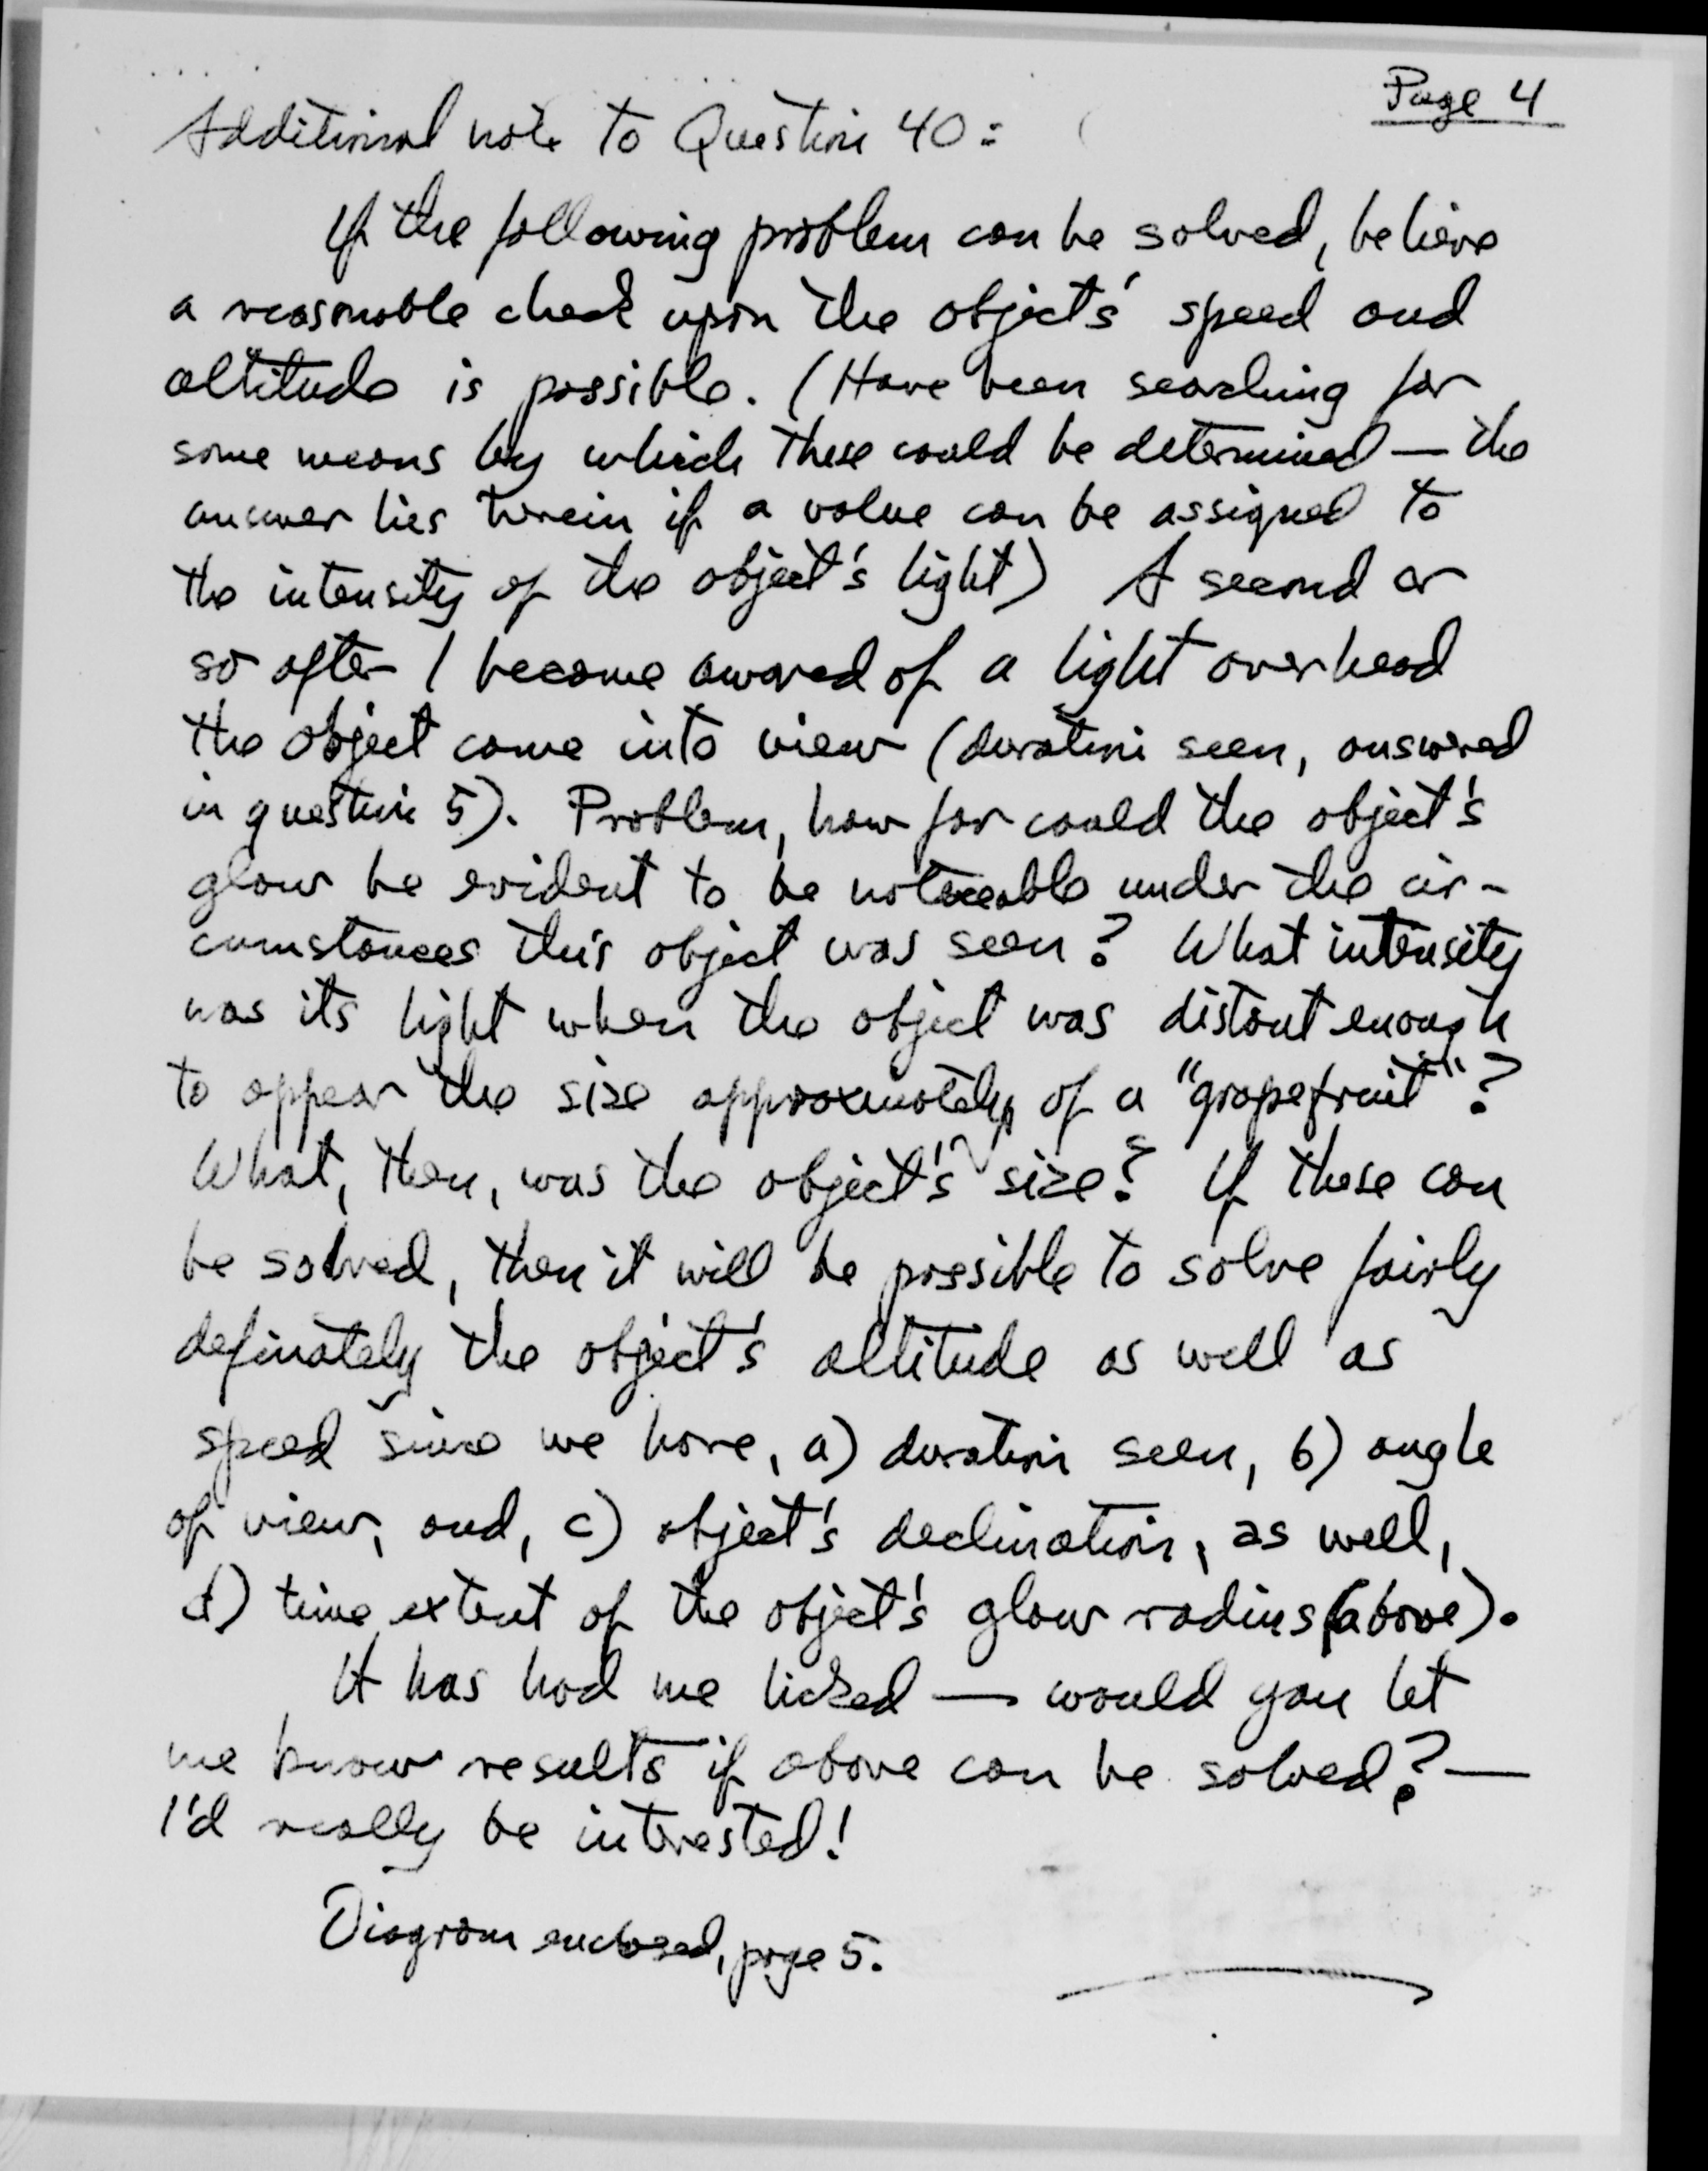 Page 4
Additional note to Question 40:
If the following problem can be solved, believe
a reasonable check upon the object's speed and
altitude is possible. (Have been searching for
some means by which these could be determined — the
answer lies herein if a value can be assigned to
the intensity of the object's light) A second or
so after I became awared of a light overhead
the object came into view (duration seen, answered
in question 5). Problem, how far could the object's
glow be evident to be noticeable under the cir-
cumstances this object was seen? What intensity
was its light when the object was distant enough
to appear the size approximately of a "grapefruit"?
What, then, was the object's size? If these can
be solved, then it will be possible to solve fairly
definately the object's altitude as well as
speed since we have, a) duration seen, b) angle
of view, and, c) object's declination, as well,
d) time extent of the object's glow radius (above).
It has had me licked — would you let
me know results if above can be solved? —
I'd really be interested!
Diagram enclosed, page 5.